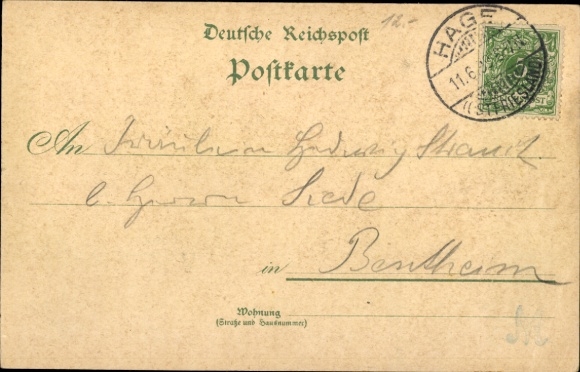 12.-
Deutsche Reichspost
Postkarte
HAGE
11.6.
(OSTFRIESLAND)
An Fräulein Hedwig Strauch
b. Herrn Siede
in Bentheim
Wohnung
(Straße und Hausnummer)